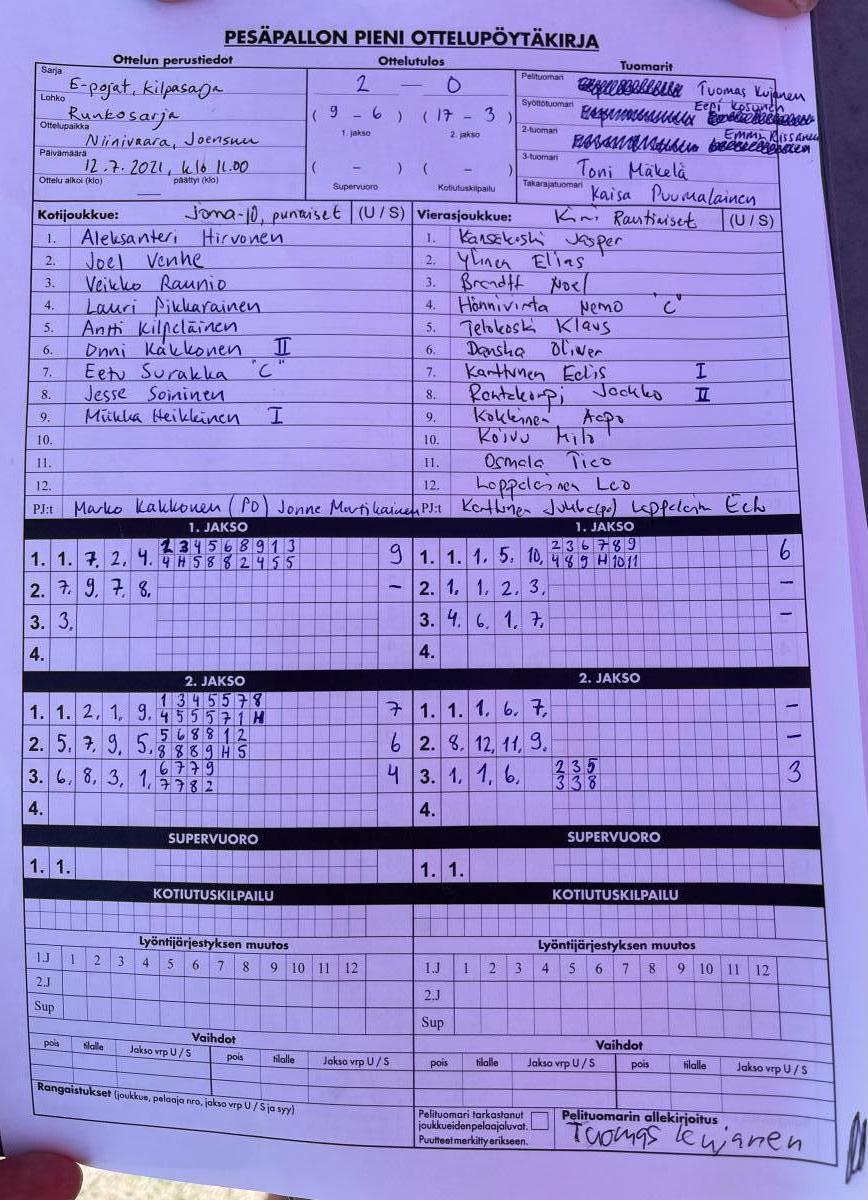 PESÄPALLON PIENI OTTELUPÖYTÄKIRJA
Ottelun perustiedot
Sarja
E-pojat, kilpasarja
Lohko
Runkosarja
Ottelupaikka
Niinivaara, Joensuu
Päivämäärä
12.7.2021, klo 11.00
Ottelu alkoi (klo) päättyi (klo)
Ottelutulos
2 — 0
( 9 - 6 ) ( 17 - 3 )
1. jakso 2. jakso
( - ) ( - )
Supervuoro Kotiutuskilpailu
Tuomarit
Pelituomari Tuomas Kujanen
Syöttötuomari Eepi Kosunen
2-tuomari Emma Rissanen
3-tuomari Toni Mäkelä
Takarajatuomari Kaisa Puumalainen
Kotijoukkue: Joma-10, punaiset (U / S)
1. Aleksanteri Hirvonen
2. Joel Venhe
3. Veikko Raunio
4. Lauri Pikkarainen
5. Antti Kilpeläinen
6. Onni Kakkonen II
7. Eetu Surakka "C"
8. Jesse Soininen
9. Miikka Heikkinen I
10.
11.
12.
PJ:t Marko Kakkonen (PJ) Jonne Martikainen
Vierasjoukkue: Kiri Rautiaiset (U / S)
1. Kansakoski Jasper
2. Ylinen Elias
3. Brandtt Noel
4. Hönnivirta Nemo "C"
5. Jelokoski Klaus
6. Danska Oliver
7. Karttunen Eelis I
8. Rantakorpi Jaakko II
9. Kokkinen Aapo
10. Koivu Milo
11. Osmala Tico
12. Loppelainen Leo
PJ:t Karttunen
1. JAKSO
1. 1. 7. 2. 4. 1 3 4 5 6 8 9 1 3 9
4 H 5 8 8 2 4 5 5
2. 7. 9. 7. 8. -
3. 3.
4.
1. JAKSO
1. 1. 1. 5. 10. 2 3 6 7 8 9 6
4 8 9 H 10 11
2. 1. 1. 2. 3. -
3. 4. 6. 1. 7. -
4.
2. JAKSO
1. 1. 2. 1. 9. 1 3 4 5 5 7 8 7
4 5 5 5 7 1 H
2. 5. 7. 9. 5. 5 6 8 8 1 2 6
8 8 8 9 H 5
3. 6. 8. 3. 1. 6 7 7 9 4
7 7 8 2
4.
2. JAKSO
1. 1. 1. 6. 7. -
2. 8. 12. 11. 9. -
3. 1. 1. 6. 2 3 5 3
3 3 8
4.
SUPERVUORO
1. 1.
SUPERVUORO
1. 1.
KOTIUTUSKILPAILU
KOTIUTUSKILPAILU
Lyöntijärjestyksen muutos
1.J 1 2 3 4 5 6 7 8 9 10 11 12
2.J
Sup
Lyöntijärjestyksen muutos
1.J 1 2 3 4 5 6 7 8 9 10 11 12
2.J
Sup
Vaihdot
pois tilalle Jakso vrp U / S pois tilalle Jakso vrp U / S
Vaihdot
pois tilalle Jakso vrp U / S pois tilalle Jakso vrp U / S
Rangaistukset (joukkue, pelaaja nro, jakso vrp U / S ja syy)
Pelituomari tarkastanut
joukkueidenpelaajaluvat.
Puutteet merkitty erikseen.
Pelituomarin allekirjoitus
Tuomas Kujanen